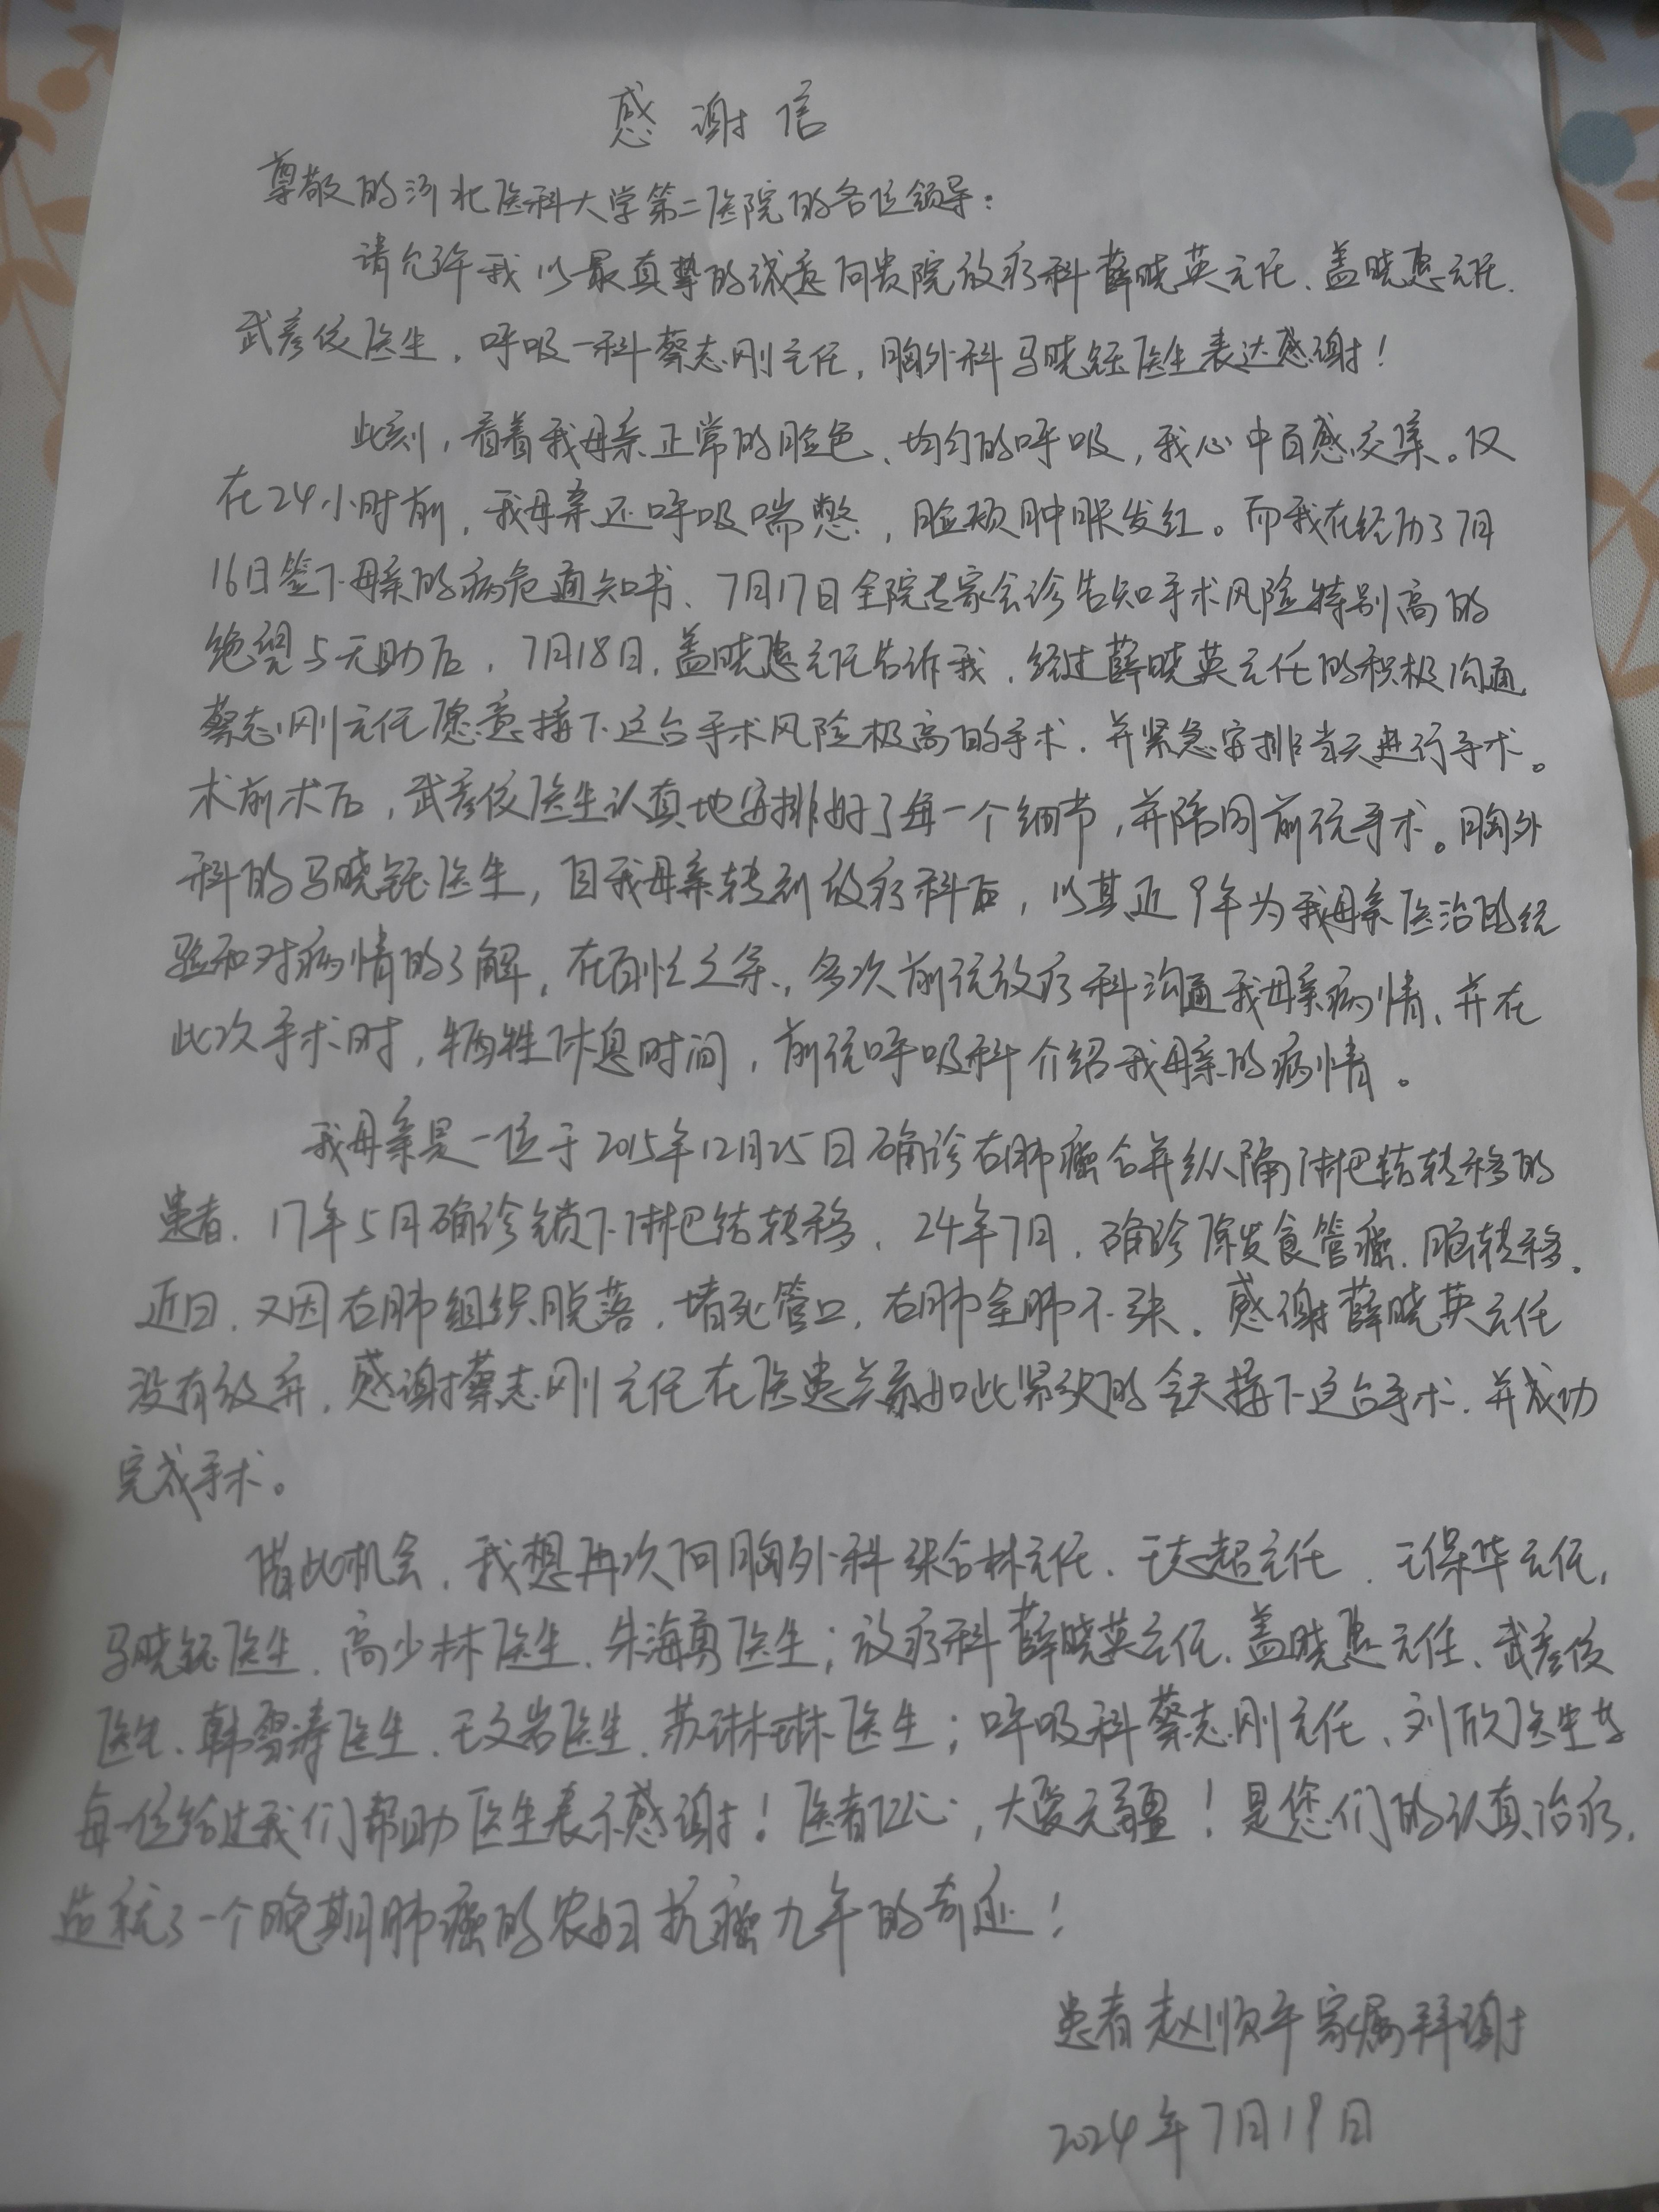 感谢信
尊敬的河北医科大学第二医院的各位领导：
请允许我以最真挚的诚意向贵院放疗科薛晓英主任、盖晓惠主任、
武彦佼医生，呼吸一科蔡志刚主任，胸外科马晓钰医生表达感谢！
此刻，看着我母亲正常的脸色、均匀的呼吸，我心中百感交集。仅
在24小时前，我母亲还呼吸喘憋，脸颊肿胀发红。而我在经历了7月
16日签下母亲的病危通知书、7月17日全院专家会诊告知手术风险特别高的
绝望与无助后，7月18日，盖晓惠主任告诉我，经过薛晓英主任的积极沟通
蔡志刚主任愿意接下这台手术风险极高的手术，并紧急安排当天进行手术。
术前术后，武彦佼医生认真地安排好了每一个细节，并陪同前往手术。胸外
科的马晓钰医生，自我母亲转到放疗科后，以其近9年为我母亲医治的经
验和对病情的了解，在百忙之余，多次前往放疗科沟通我母亲病情、并在
此次手术时，牺牲休息时间，前往呼吸科介绍我母亲的病情。
我母亲是一位于2015年12月25日确诊右肺癌合并纵隔淋巴结转移的
患者，17年5月确诊锁下淋巴结转移，24年7月，确诊原发食管癌、脑转移。
近日，又因右肺组织脱落，堵死管口，右肺全肺不张。感谢薛晓英主任
没有放弃，感谢蔡志刚主任在医患关系如此紧张的今天接下这台手术，并成功
完成手术。
借此机会，我想再次向胸外科张合林主任、王志超主任、王保华主任，
马晓钰医生、高少林医生、朱海勇医生；放疗科薛晓英主任、盖晓惠主任、武彦佼
医生、韩雪涛医生、王文岩医生、苏琳琳医生；呼吸科蔡志刚主任、刘欣医生等
每一位给过我们帮助医生表示感谢！医者仁心，大爱无疆！是您们的认真治疗，
造就了一个晚期肺癌的农妇抗癌九年的奇迹！
患者赵顺平家属拜谢
2024年7月19日